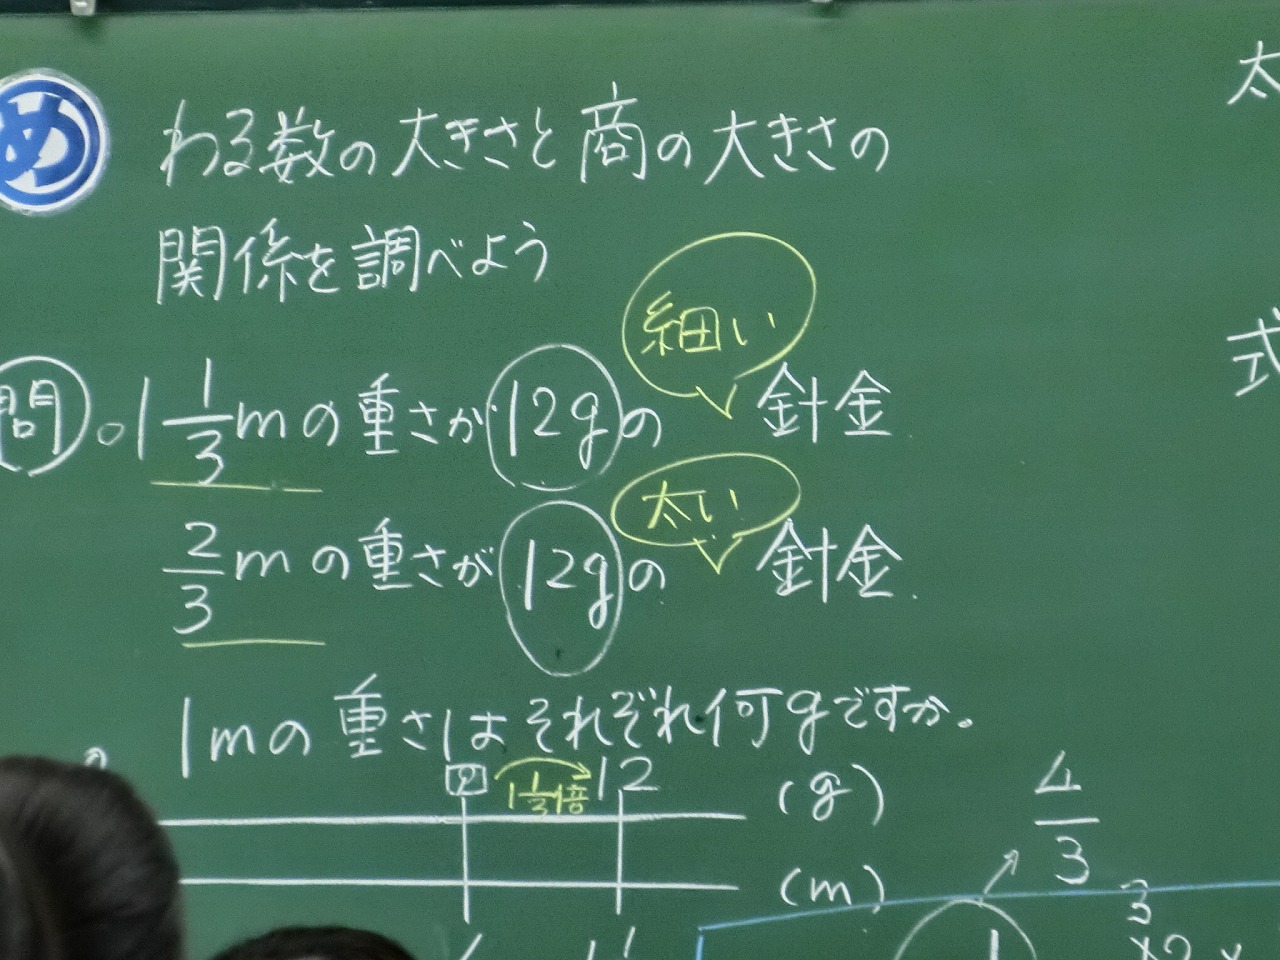 め わる数の大きさと商の大きさの
関係を調べよう
細い
問 。1 1/3 mの重さが12gの 針金
太い
2/3 mの重さが12gの 針金
1mの重さはそれぞれ何gですか。
? 1 1/3倍 12 (g)
(m)
4/3
太
式